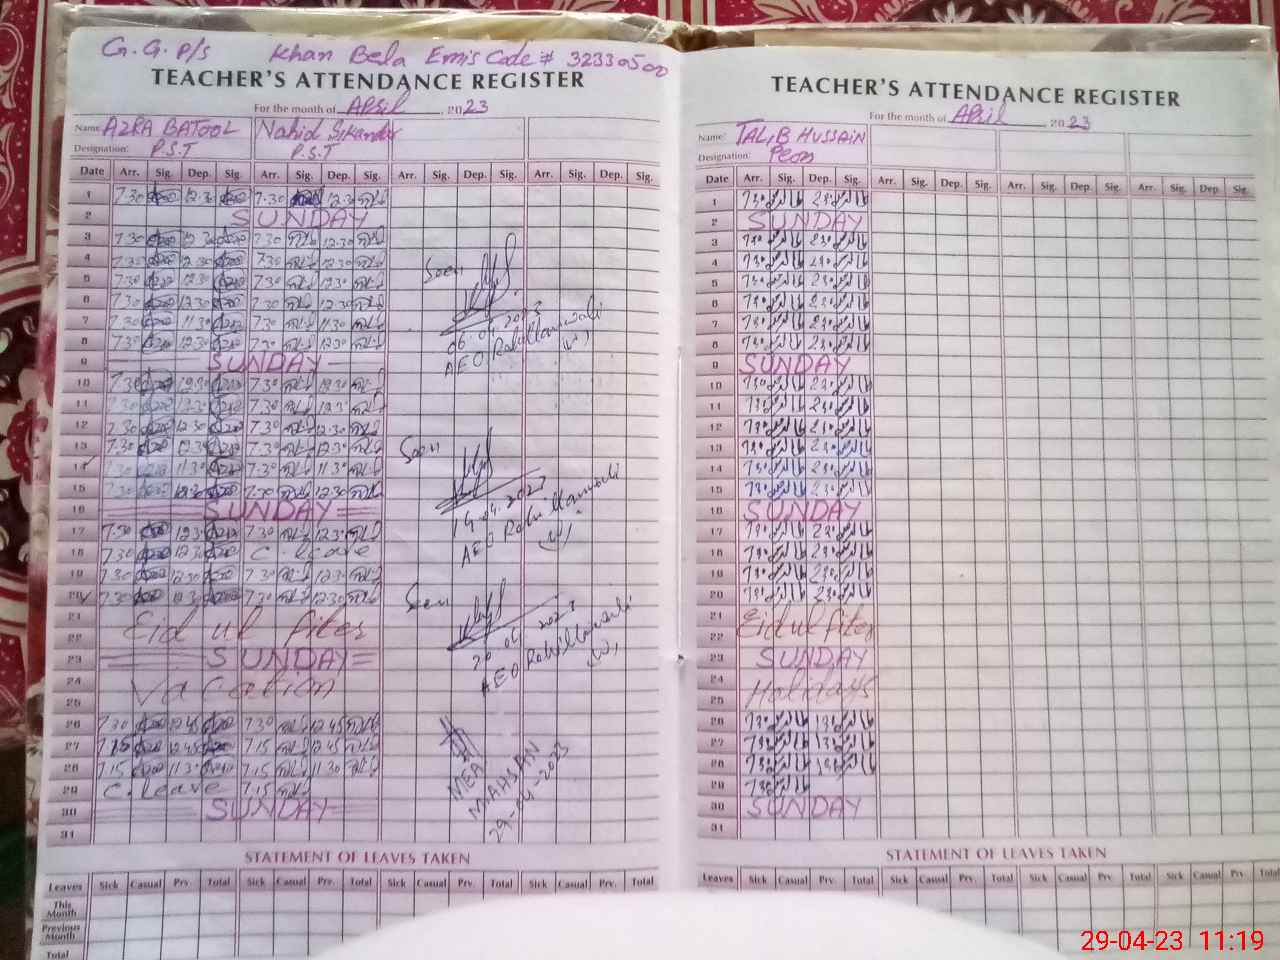 G.G.P/S Khan Bela Emis Code # 32330500
TEACHER'S ATTENDANCE REGISTER
For the month of April, 2023
Name: AZRA BATOOL Nahid Sikandar
Designation: P.S.T P.S.T
Date Arr. Sig. Dep. Sig. Arr. Sig. Dep. Sig. Arr. Sig. Dep. Sig. Arr. Sig. Dep. Sig.
1 7.30 12.30 7.30 12.30
2 SUNDAY
3 7.30 12.30 7.30 12.30
4 7.30 12.30 7.30 12.30
5 7.30 12.30 7.30 12.30
6 7.30 12.30 7.30 12.30
7 7.30 11.30 7.30 11.30
8 7.30 12.30 7.30 12.30
9 SUNDAY
10 7.30 12.30 7.30 12.30
11 7.30 12.30 7.30 12.30
12 7.30 12.30 7.30 12.30
13 7.30 12.30 7.30 12.30
14 7.30 11.30 7.30 11.30
15 7.30 12.30 7.30 12.30
16 SUNDAY
17 7.30 12.30 7.30 12.30
18 7.30 12.30 C.leave
19 7.30 12.30 7.30 12.30
20 7.30 12.30 7.30 12.30
21 Eid ul fiter
22
23 SUNDAY
24 Vacation
25
26 7.30 12.45 7.30 12.45
27 7.15 12.45 7.15 12.45
28 7.15 11.30 7.15 11.30
29 C.leave 7.15
30 SUNDAY
31
Seen
06.04.2023
AEO
Seen
14.04.2023
AEO
Seen
20.04.2023
AEO
MEA
MAHSAN
29-04-2023
STATEMENT OF LEAVES TAKEN
Leaves Sick Casual Prv. Total Sick Casual Prv. Total Sick Casual Prv. Total Sick Casual Prv. Total
This Month
Previous Month
Total
TEACHER'S ATTENDANCE REGISTER
For the month of April 2023
Name: TALIB HUSSAIN
Designation: Peon
Date Arr. Sig. Dep. Sig. Arr. Sig. Dep. Sig. Arr. Sig. Dep. Sig. Arr. Sig. Dep. Sig.
1 730 230
2 SUNDAY
3 730 230
4 730 230
5 730 230
6 730 230
7 730 230
8 730 230
9 SUNDAY
10 730 230
11 730 230
12 730 230
13 730 230
14 730 230
15 730 230
16 SUNDAY
17 730 230
18 730 230
19 730 230
20 730 230
21 Eid ul fiter
22
23 SUNDAY
24 Holidays
25
26 730 130
27 730 130
28 730 130
29 730
30 SUNDAY
31
STATEMENT OF LEAVES TAKEN
Leaves Sick Casual Prv. Total Sick Casual Prv. Total Sick Casual Prv. Total Sick Casual Prv. Total
This Month
Previous Month
Total
29-04-23 11:19